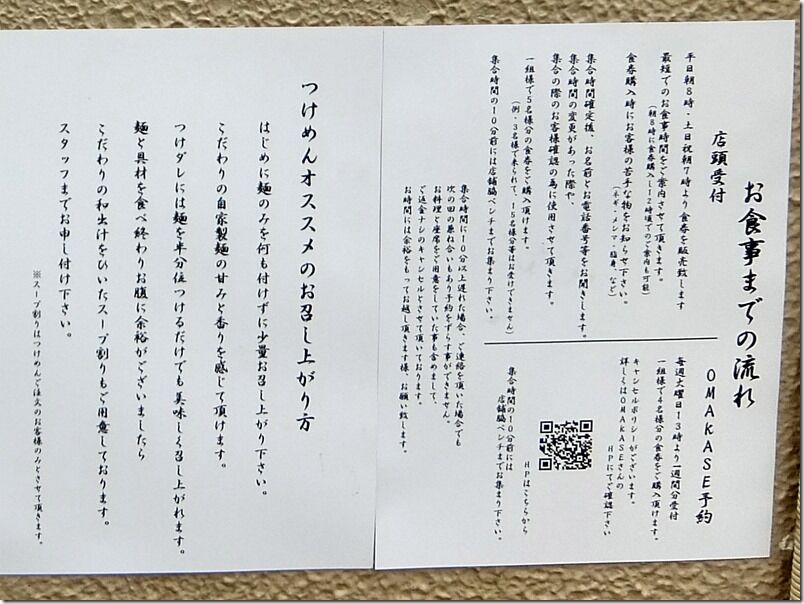 お食事までの流れ
店頭受付
平日朝8時・土日祝朝7時より食券を販売致します
最短でのお食事時間をご案内させて頂きます。
(朝8時に食券購入し12時頃でのご案内も可能)
食券購入時にお客様の苦手な物をお知らせ下さい。
(ネギ・メンマ・脂身、など)
集合時間確定後、お名前とお電話番号等をお聞きします。
集合時間の変更があった際や、
集合の際のお客様確認の為に使用させて頂きます。
一組様で5名様分の食券をご購入頂けます。
(例・3名様で来られて、15名様分等はお受けできません)
集合時間の10分前には店舗脇ベンチまでお集まり下さい。
集合時間に10分以上遅れた場合、ご連絡を頂いた場合でも
次の回の兼ね合いもあり予約をずらす事ができません。
お料理と座席をご用意をしていた事も含めまして、
ご返金ナシのキャンセルとさせて頂いております。
お時間には余裕をもってお越し頂きます様、お願い致します。
OMAKASE予約
毎週火曜日13時より一週間分受付
一組様で4名様分の食券をご購入頂けます。
キャンセルポリシーがございます。
詳しくはOMAKASEさんの
HPにてご確認下さい
HPはこちらから
集合時間の10分前には
店舗脇ベンチまでお集まり下さい。
つけめんオススメのお召し上がり方
はじめに麺のみを何も付けずに少量お召し上がり下さい。
こだわりの自家製麺の甘みと香りを感じて頂けます。
つけダレには麺を半分位つけるだけでも美味しく召し上がれます。
麺と具材を食べ終わりお腹に余裕がございましたら
こだわりの和出汁をひいたスープ割りもご用意しております。
スタッフまでお申し付け下さい。
※スープ割りはつけめんご注文のお客様のみとさせて頂きます。